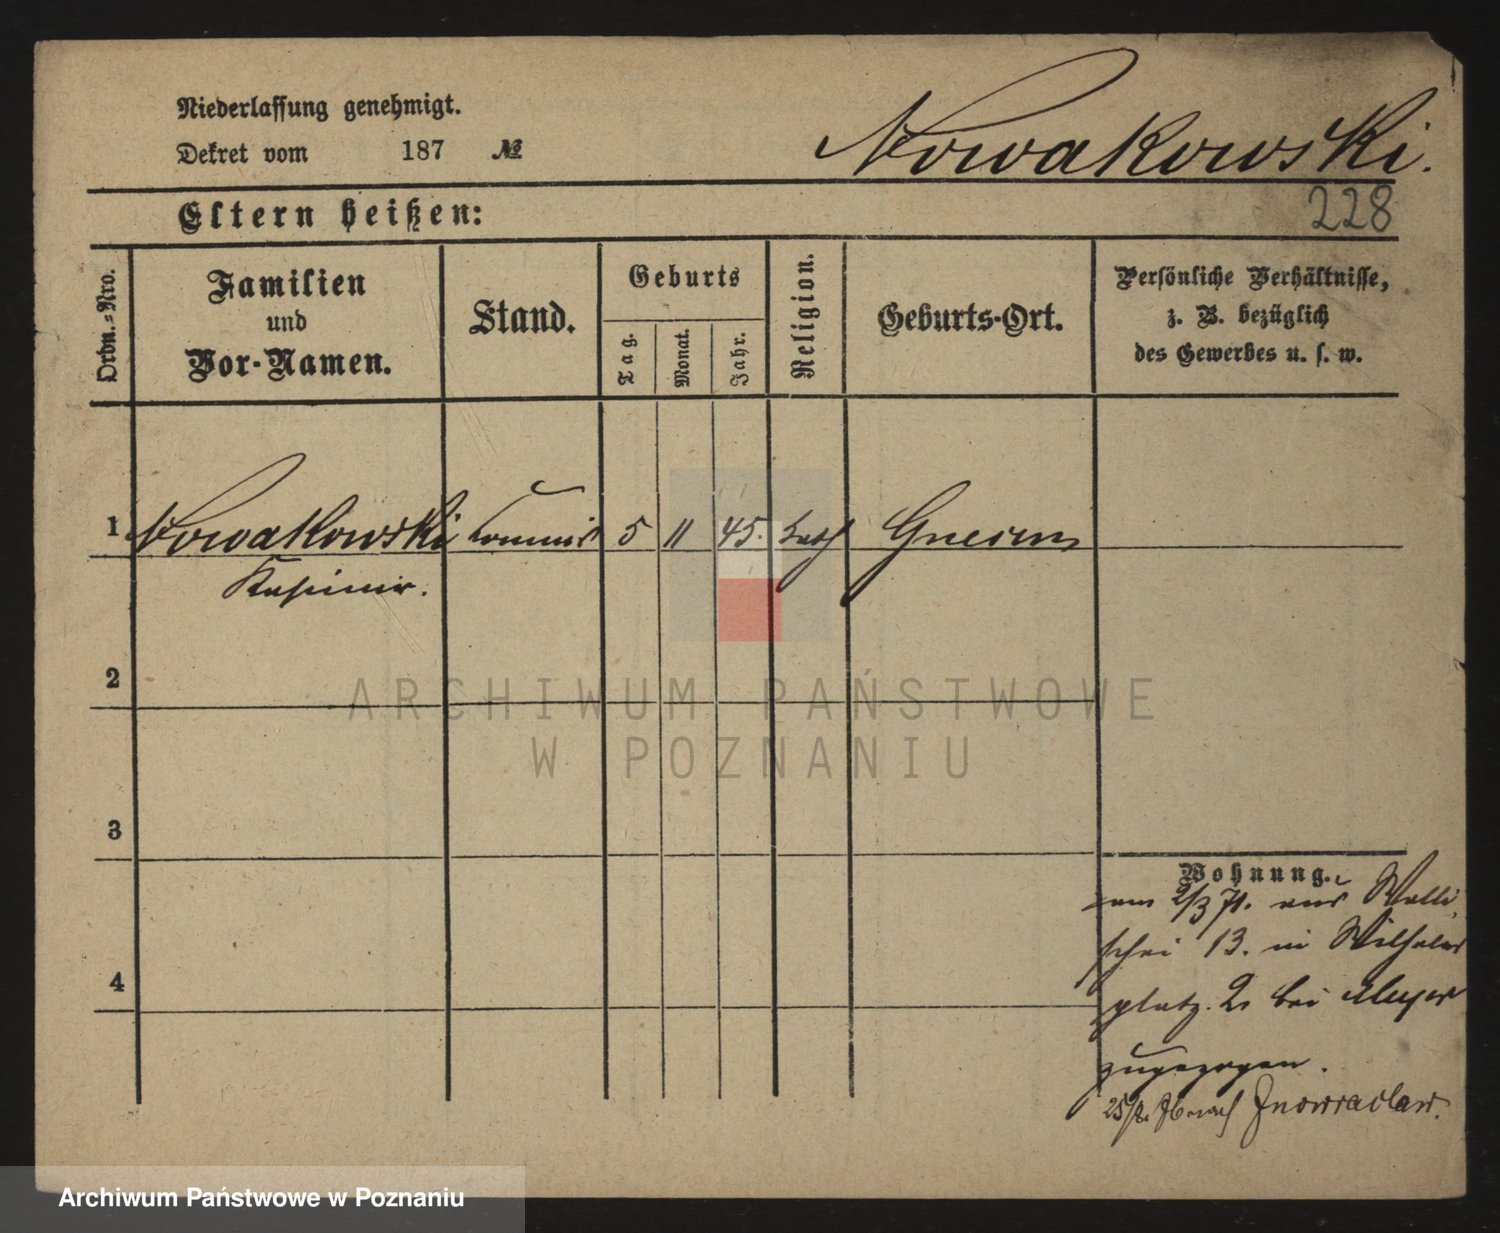 Niederlassung genehmigt.
Dekret vom 187 №
Nowakowski.
Eltern heißen:
228
Ordn.-Nro.
Familien
und
Vor-Namen.
Stand.
Geburts
Tag.
Monat.
Jahr.
Religion.
Geburts-Ort.
Persönliche Verhältnisse,
z. B. bezüglich
des Gewerbes u. s. w.
1 Nowakowski Commis 5 11 45. kath Gnesen
Kasimir.
2
ARCHIWUM PAŃSTWOWE
W POZNANIU
3
Wohnung.
am 2/3 71. aus Walli
schei 13. in Wilhelms
4
platz. 2 bei
zugezogen.
nach Inowraclaw.
Archiwum Państwowe w Poznaniu